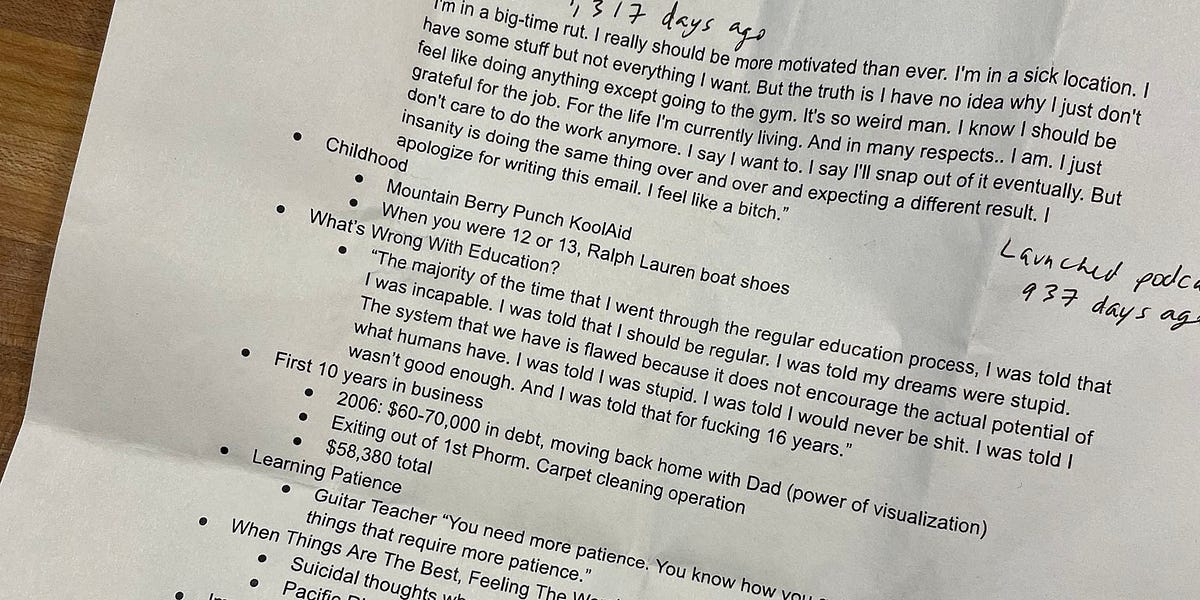 ,317 days ago
I'm in a big-time rut. I really should be more motivated than ever. I'm in a sick location. I
have some stuff but not everything I want. But the truth is I have no idea why I just don't
feel like doing anything except going to the gym. It's so weird man. I know I should be
grateful for the job. For the life I'm currently living. And in many respects.. I am. I just
don't care to do the work anymore. I say I want to. I say I'll snap out of it eventually. But
insanity is doing the same thing over and over and expecting a different result. I
apologize for writing this email. I feel like a bitch.”
Launched
937 days ago
• Childhood
• Mountain Berry Punch KoolAid
• When you were 12 or 13, Ralph Lauren boat shoes
• What's Wrong With Education?
• “The majority of the time that I went through the regular education process, I was told that
I was incapable. I was told that I should be regular. I was told my dreams were stupid.
The system that we have is flawed because it does not encourage the actual potential of
what humans have. I was told I was stupid. I was told I would never be shit. I was told I
wasn't good enough. And I was told that for fucking 16 years.”
• First 10 years in business
• 2006: $60-70,000 in debt, moving back home with Dad (power of visualization)
• Exiting out of 1st Phorm. Carpet cleaning operation
• $58,380 total
• Learning Patience
• Guitar Teacher “You need more patience. You know how you
things that require more patience.”
• When Things Are The Best, Feeling The
• Suicidal thoughts
• Pacific